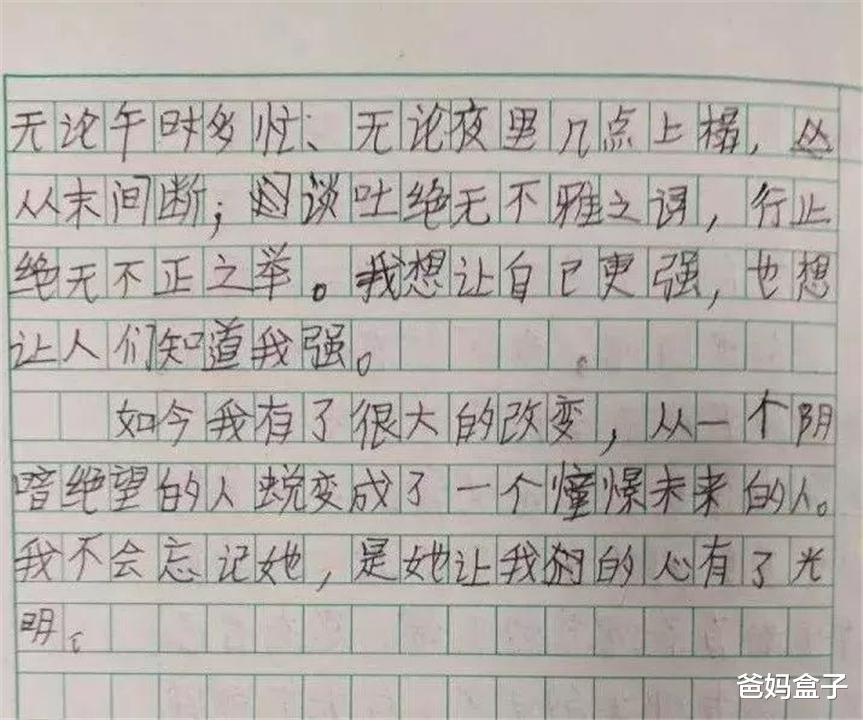 无论午时多忙、无论夜里几点上榻，
从未间断；谈吐绝无不雅之词，行止
绝无不正之举。我想让自己更强，也想
让人们知道我强。
如今我有了很大的改变，从一个阴
暗绝望的人蜕变成了一个憧憬未来的人。
我不会忘记她，是她让我的心有了光
明。
爸妈盒子